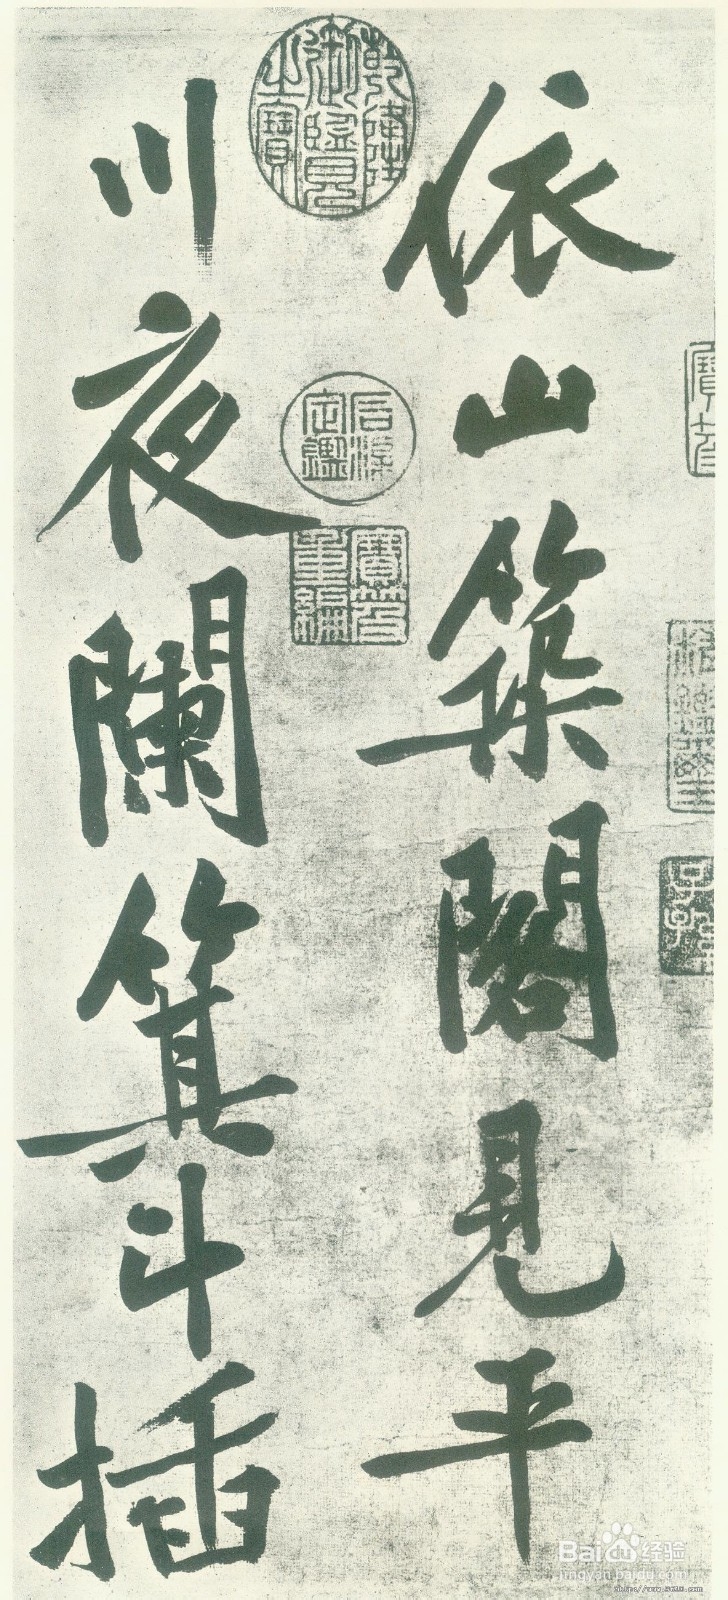 依山築閣見平
川夜闌箕斗插
乾隆
御覽
之寶
石渠
定鑑
寶笈
重編
Baidu经验
jingyan.baidu.com